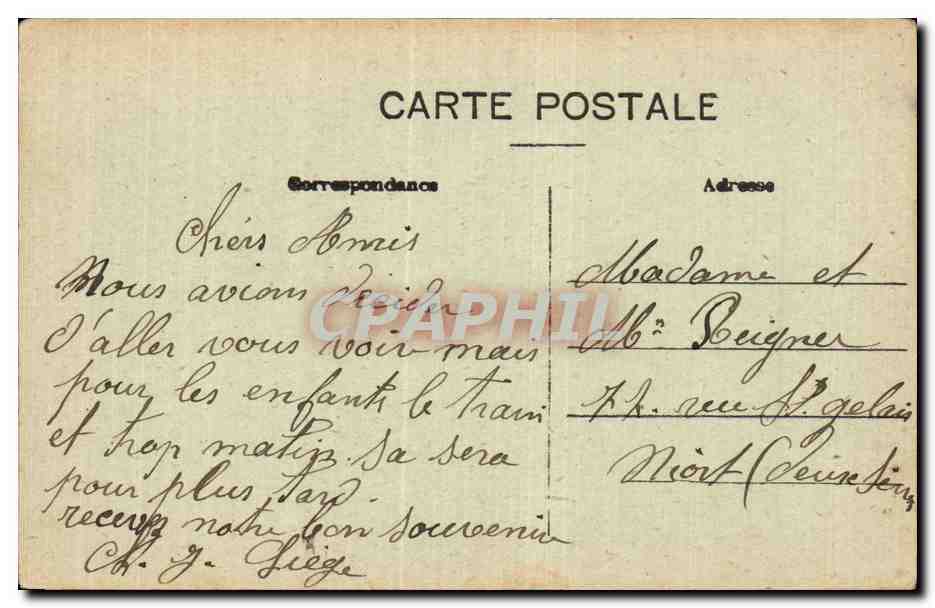 CARTE POSTALE
Correspondance
Adresse
Chérs Amis
Nous avions decider
d'aller vous voir mais
pour les enfants le train
et trop matin sa sera
pour plus tard.
recevez notre bon souvenir
Ch. J. Liège
Madame et
Mr Reigner
72. rue St. gelais
Niort (Deux Sèvres
CPAPHIL